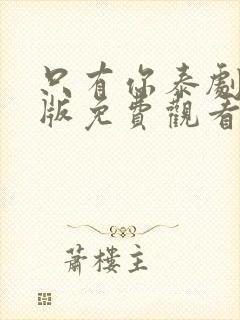 只有你泰劇
版免費觀看
蕭樓主